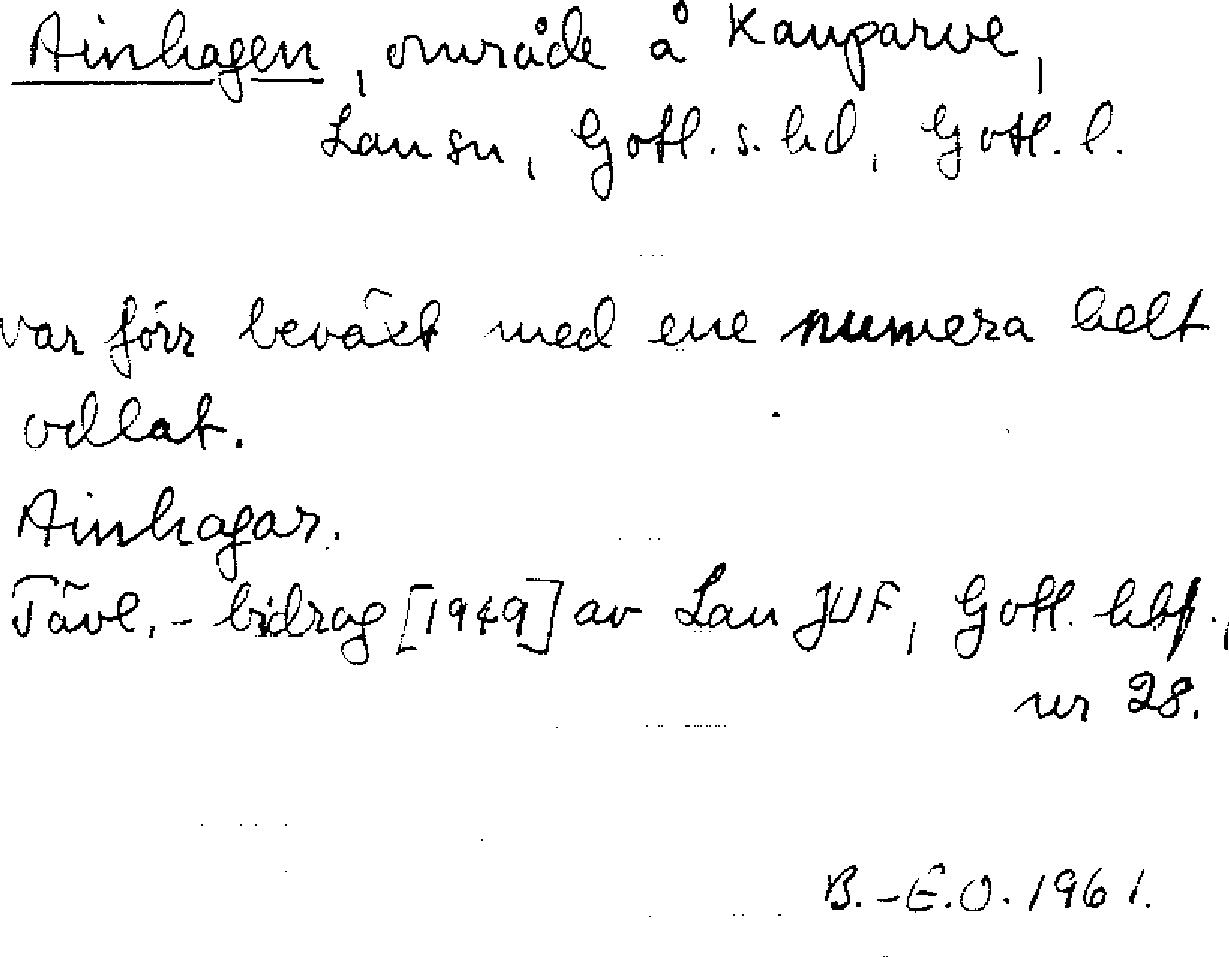 Ainhagen, område å Kauparve,
Lau sn, Gotl. s. hd, Gotl. l.
var förr beväxt med ene numera helt
odlat.
Ainhagar.
Tävl.-bidrag [1949] av Lau JUF, Gotl. hbf.,
nr 28.
B.-E.O. 1961.